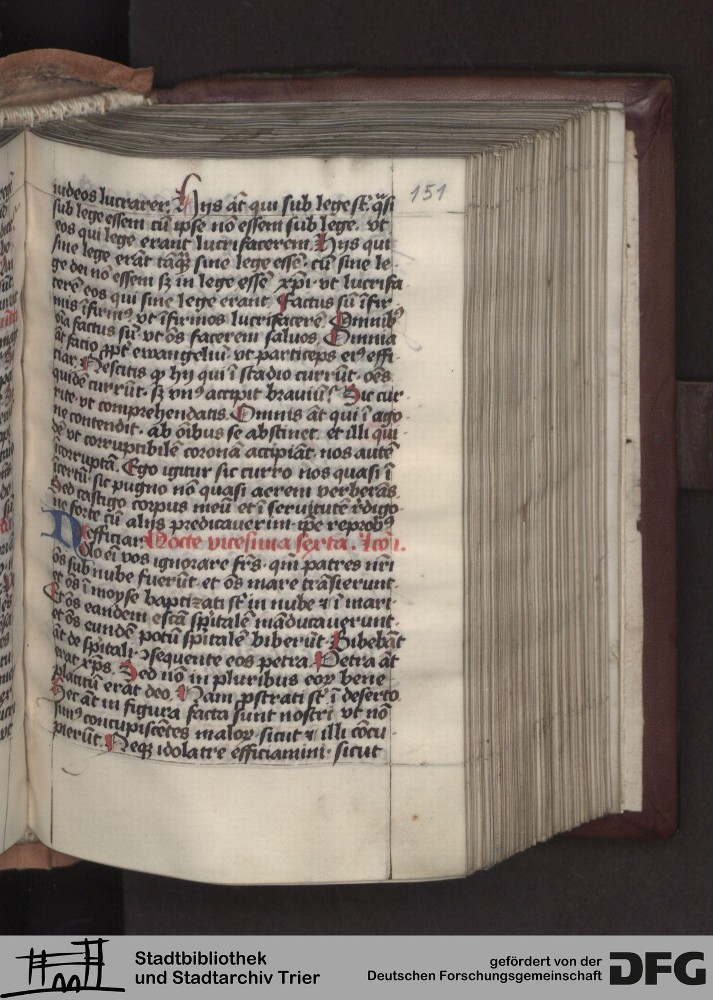 151
iudeos lucrarer. Hijs āt qui sub lege st̄. q̄si
sub lege essem cū ipse nō essem sub lege. vt
eos qui lege erant lucrifacerem. Hijs qui
sine lege erāt tāq̄ȝ sine lege essē. cū sine le-
ge dei nō essem sȝ in lege essē xp̄i. vt lucrifa-
cerē eos qui sine lege erant. Factus sū īfir-
mis īfirmꝰ. vt īfirmos lucrifacerē. Omnibꝰ
oīa factus sū. vt ōs facerem saluos. Omnia
āt facio ꝓpt̄ ewangeliū. vt particeps eiꝰ effi-
ciar. Nescitis ꝙ hij qui ī stadio currūt. oēs
quidē currūt. sȝ vnꝰ accipit brauiū? Sic cur-
rite vt comprehendatis. Omnis āt qui ī ago-
ne contendit. ab oībus se abstinet. et illi qui-
dē vt corruptibilē coronā accipiāt. nos autē
īcorruptā. Ego igitur sic curro nos quasi ī
īcertū. sic pugno nō quasi aerem verberās.
Sed castigo corpus meū et ī seruitutē r̄digo.
ne forte cū alijs predicauerim. ip̄e reprobꝰ
efficiar. Nocte vicesima sexta. Lc̄o i.
Nolo eī vos ignorare fr̄s. qm̄ patres nr̄i
ōs sub nube fuerūt. et ōs mare trāsierunt.
et ōs ī moyse baptizati st̄ in nube ⁊ ī mari.
Et ōs eandem escā spitalē māducauerunt.
et ōs eundē potū spitalē biberūt. Bibebāt
āt de spitali. ꝯsequente eos petra. Petra āt
erat xp̄s. Sed nō in pluribus eoꝝ bene
placitū erāt deo. Nam ꝓstrati st̄ ī deserto.
Hec āt in figura facta sunt nostri vt nō
simꝰ concupiscētes maloꝝ. sicut ⁊ illi cōcu-
pierūt. Neqȝ idolatre efficiamini. sicut
Stadtbibliothek
und Stadtarchiv Trier
gefördert von der
Deutschen Forschungsgemeinschaft
DFG